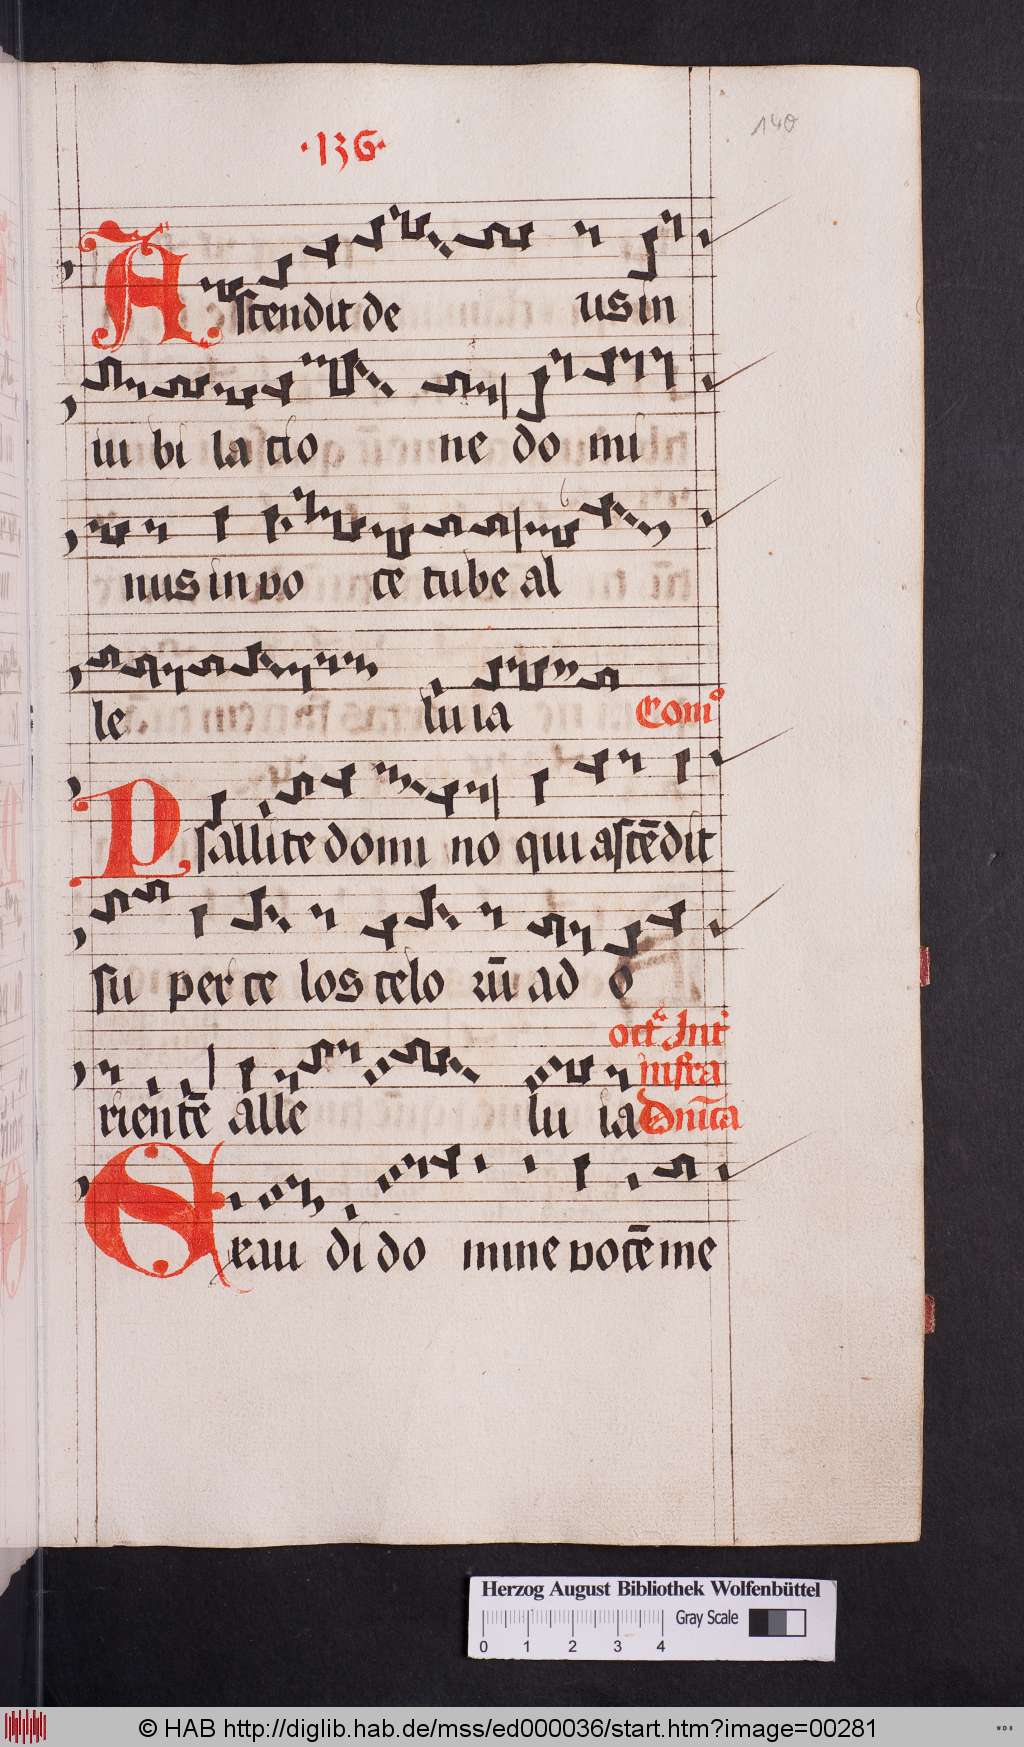 ·136·
140
Ascendit de us in
iu bi la cio ne do mi
nus in vo ce tube al
le luia Com̃o
Psallite domi no qui ascēdit
su per ce los celo rū ad o
octa Int
riente alle lu ia infra
Dn̄ica
Exau di do mine vocē me
Herzog August Bibliothek Wolfenbüttel
Gray Scale
0 1 2 3 4
© HAB http://diglib.hab.de/mss/ed000036/start.htm?image=00281